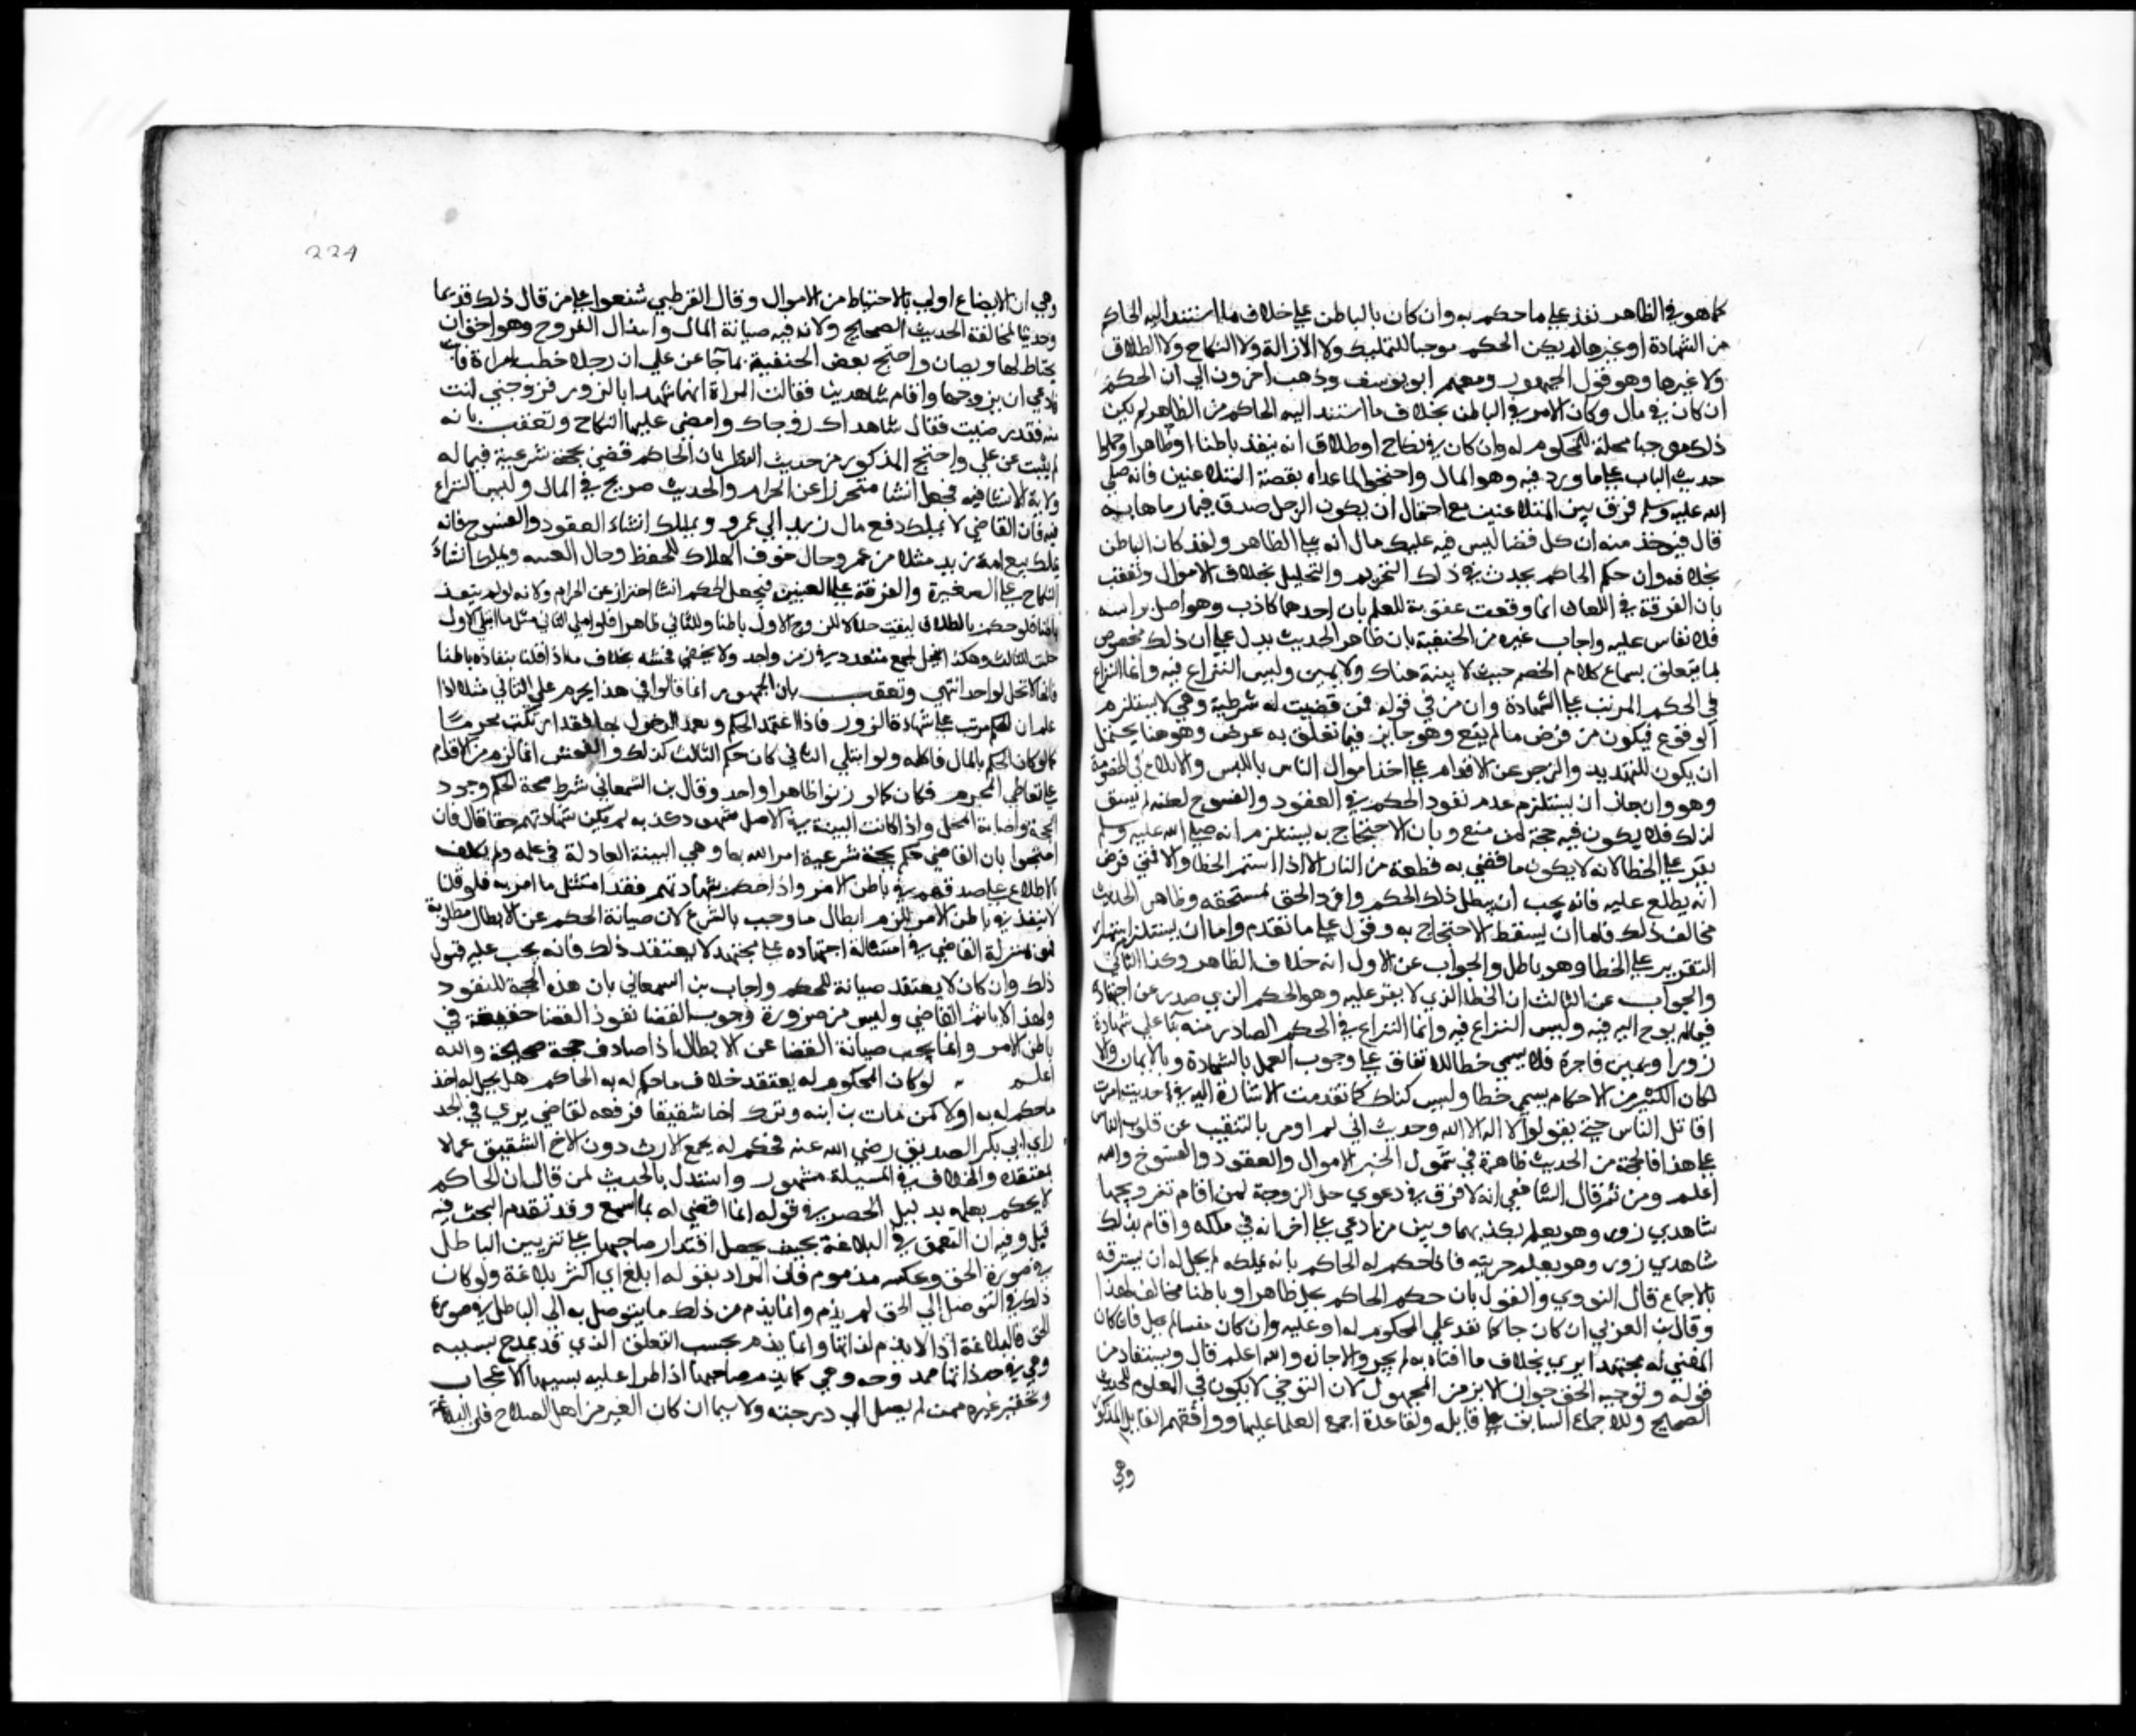 كما هو في الظاهر نفذ علي ما حكم به وان كان بالباطن علي خلاف ما استند اليه الحاكم
من الشهادة او غيرها لم يكن الحكم موجبا للتمليك ولا الازالة ولا النكاح ولا الطلاق
ولا غيرها وهو قول الجمهور ومعهم ابو يوسف وذهب اخرون الي ان الحكم
ان كان في مال وكان الامر في الباطن بخلاف ما استند اليه الحاكم من الظاهر لم يكن
ذلك موجبا لحله للمحكوم له وان كان في نكاح او طلاق انه ينفذ باطنا وظاهرا وحملوا
حديث الباب علي ما ورد فيه وهو المال واحتجوا لما عداه بقصة المتلاعنين فانه صلي
الله عليه وسلم فرق بين المتلاعنين مع احتمال ان يكون الرجل صدق فيما رماها به
قال فيوخذ منه ان كل قضا ليس فيه تمليك مال انه علي الظاهر ولو كان الباطن
بخلافه وان حكم الحاكم يحدث في ذلك التحريم والتحليل بخلاف الاموال وتعقب
بان الفرقة في اللعان انما وقعت عقوبة للعلم بان احدهما كاذب وهو اصل براسه
فلا يقاس عليه واجاب غيره من الحنفية بان ظاهر الحديث يدل علي ان ذلك مخصوص
بما يتعلق بسماع كلام الخصم حيث لا بينة هناك ولا يمين وليس النزاع فيه وانما النزاع
في الحكم المرتب علي الشهادة وان من في قوله فمن قضيت له شرطية وهي لا تستلزم
الوقوع فيكون من فرض ما لم يقع وهو جايز فيما تعلق به غرض وهو هنا يحتمل
ان يكون للتهديد والزجر عن الاقدام علي اخذ اموال الناس باللسن والابلاغ في الخصومة
وهو وان جاز ان يستلزم عدم نفوذ الحكم في العقود والفسوخ لكنه لم يسق
لذلك فلا يكون فيه حجة لمن منع وبان الاحتجاج به يستلزم انه صلي الله عليه وسلم
يقر علي الخطا لانه لا يكون ما قضي به قطعة من النار الا اذا استمر الخطا والا فمتي فرض
انه يطلع عليه فانه يجب ان يبطل ذلك الحكم ويرد الحق لمستحقه وظاهر الحديث
يخالف ذلك فاما ان يسقط الاحتجاج به ويؤول علي ما تقدم واما ان يستلزم استمرار
التقرير علي الخطا وهو باطل والجواب عن الاول انه خلاف الظاهر وكذا الثاني
والجواب عن الثالث ان الخطا الذي لا يقر عليه وهو الحكم الذي صدر عن اجتهاده
فيما لم يوح اليه فيه وليس النزاع فيه وانما النزاع في الحكم الصادر منه بنا علي شهادة
زور او يمين فاجرة فلا يسمي خطا للاتفاق علي وجوب العمل بالشهادة وبالايمان والا
لكان الكثير من الاحكام يسمي خطا وليس كذلك كما تقدمت الاشارة اليه في حديث امرت
اقاتل الناس حتي يقولوا لا اله الا الله وحديث اني لم اومر بالتنقيب عن قلوب الناس
علي هذا فالحجة من الحديث ظاهرة في شمول الخبر الاموال والعقود والفسوخ والله
اعلم ومن ثم قال الشافعي انه لا فرق في دعوي حل الزوجة لمن اقام بتزويجها
شاهدي زور وهو يعلم بكذبهما وبين من ادعي علي اخر انه في ملكه واقام بذلك
شاهدي زور وهو يعلم حريته فاذا حكم له الحاكم بانه ملكه لم يحل له ان يسترقه
بالاجماع قال النووي والقول بان حكم الحاكم يحل ظاهرا وباطنا مخالف لهذا
وقال بن العربي ان كان حاكما نفذ علي المحكوم له او عليه وان كان مفتيا لم يحل فان كان
المفتي له مجتهدا يري بخلاف ما افتاه به لم يجز والا جاز والله اعلم قال ويستفاد من
قوله وتوخيا الحق جواز الابرا من المجهول لان التوخي لا يكون في المعلوم للحديث
الصحيح وللاجماع السابق علي قايله ولقاعدة اجمع العلما عليها ووافقهم القايل المذكور
وهي
224
وهي ان الابضاع اولي بالاحتياط من الاموال وقال القرطبي شنعوا علي من قال ذلك قديما
وحديثا لمخالفة الحديث الصحيح ولانه فيه صيانة المال وابتذال الفروج وهو احق ان
يحتاط لها ويصان واحتج بعض الحنفية بما جا عن علي ان رجلا خطب امراة فابت
فادعي ان تزوجها واقام شاهدين فقالت المراة انهما شهدا بالزور فزوجني انت
منه فقد رضيت فقال شاهداك زوجاك وامضي عليها النكاح وتعقب بانه
لم يثبت عن علي واحتج المذكور من حديث النظر بان الحاكم قضي بحجة شرعية فيما له
ولاية الانشا فيه فجعل انشا متحرزا عن الحرام والحديث صريح في المال وليس النزاع
فيه فان القاضي لا يملك دفع مال زيد الي عمرو ويملك انشاء العقود والفسوخ فانه
يملك بيع امة زيد مثلا من عمرو حال خوف الهلاك للحفظ وحال الغيبة ويملك انشاء
النكاح علي الصغيرة والفرقة علي العنين فيجعل الحكم انشا احترازا عن الحرام ولانه لو لم ينفذ
باطنا فلو حكم بالطلاق لبقيت حلالا للزوج الاول باطنا وللثاني ظاهرا فلو ابتلي الثاني مثل ما ابتلي الاول
حلت للثالث وهكذا فتحل لجمع متعدد في زمن واحد ولا يخفي فحشه بخلاف ما اذا قلنا بنفاذه باطنا
فانها لا تحل لواحد انتهي وتعقب بان الجمهور انما قالوا في هذا يحرم علي الثاني مثلا اذا
علم ان الحكم مرتب علي شهادة الزور فاذا اعتمد الحكم وتعمد الدخول بها فقد ارتكب محرما
كما لو كان الحكم بالمال فاكله ولو ابتلي الثاني كان حكم الثالث كذلك والفحش انما لزم من الاقدام
علي تعاطي المحرم فكان كما لو زنوا ظاهرا واحد وقال بن السمعاني شرط صحة الحكم وجود
الحجة واصابة المحل واذا كانت البينة في الاصل شهود كذبه لم يكن شهادتهم حقا قال فان
احتجوا بان القاضي حكم بحجة شرعية امر الله بها وهي البينة العادلة في علمه ولم يكلف
الاطلاع علي صدقهم في باطن الامر واذا حكم بشهادتهم فقد امتثل ما امر به فلو قلنا
لا ينفذ في باطن الامر للزم ابطال ما وجب بالشرع لان صيانة الحكم عن الابطال مطلوبة
فهو بمنزلة القاضي في مسئلة اجتهاده علي مجتهد لا يعتقد ذلك فانه يجب عليه قبول
ذلك وان كان لا يعتقد صيانة للحكم واجاب بن السمعاني بان هذه الحجة للنفوذ
ولهذا لا ياثم القاضي وليس من ضرورة وجوب القضا نفوذ القضا حقيقة في
باطن الامر وانما يجب صيانة القضا عن الابطال اذا صادف حجة صحيحة والله
اعلم لو كان المحكوم له يعتقد خلاف ما حكم له به الحاكم هل يحل له اخذ
ما حكم له به اولا كمن مات بن ابنه وترك اخا شقيقا فرفعه لقاضي يري في الجد
راي ابي بكر الصديق رضي الله عنه فحكم له بجميع الارث دون الاخ الشقيق عملا
بمعتقده والخلاف في المسيلة مشهور واستدل بالحديث لمن قال ان الحاكم
لا يحكم بعلمه بدليل الحصر في قوله انما اقضي له بما اسمع وقد تقدم البحث فيه
قبل وفيه ان التعمق في البلاغة بحيث يحصل اقتدار صاحبها علي تزيين الباطل
في صورة الحق وعكسه مذموم فان المراد بقوله ابلغ اي اكثر بلاغة ولو كان
ذلك في التوصل الي الحق لم يذم وانما يذم من ذلك ما يتوصل به الي الباطل في صورة
الحق فالبلاغة اذا لا تذم لذاتها وانما تذم بحسب التعلق الذي قد يمدح بسببه
وهي في حد ذاتها ممدوحة وهي كما يذم صاحبها اذا طرا عليه بسببها الاعجاب
وتحقير غيره ممن لم يصل الي درجته ولا سيما ان كان الغير من اهل الصلاح فان البلاغة